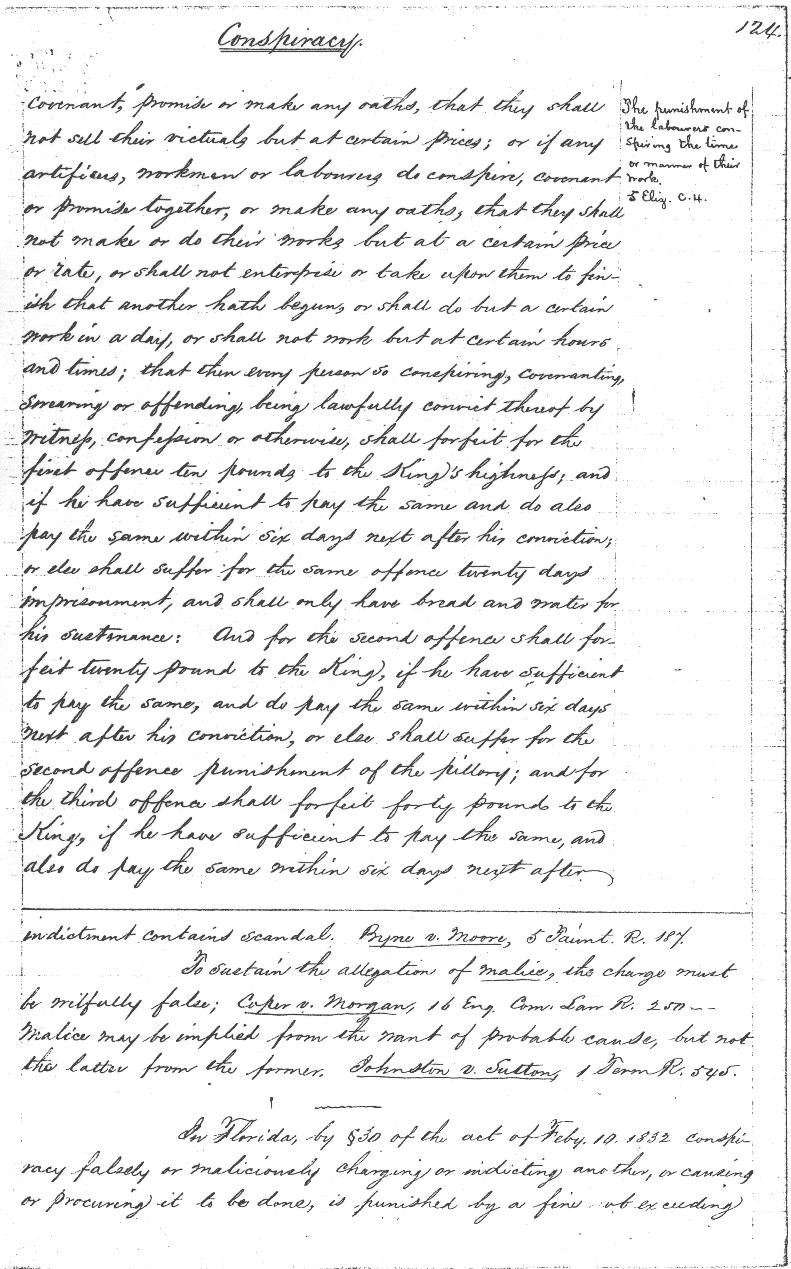 Conspiracy.
124.
covenant, promise or make any oaths, that they shall
not sell their victuals but at certain prices; or if any
artificers, workmen or labourers do conspire, covenant
or promise together, or make any oaths, that they shall
not make or do their works but at a certain price
or rate, or shall not enterprise or take upon them to fin-
ish that another hath begun, or shall do but a certain
work in a day, or shall not work but at certain hours
and times; that then every person so conspiring, covenanting,
swearing or offending, being lawfully convict thereof by
witness, confession or otherwise, shall forfeit for the
first offence ten pounds to the King's highness; and
if he have sufficient to pay the same and do also
pay the same within six days next after his conviction;
or else shall suffer for the same offence twenty days
imprisonment, and shall only have bread and water for
his sustenance: And for the second offence shall for-
feit twenty pound to the King, if he have sufficient
to pay the same, and do pay the same within six days
next after his conviction, or else shall suffer for the
second offence punishment of the pillory; and for
the third offence shall forfeit forty pound to the
King, if he have sufficient to pay the same, and
also do pay the same within six days next after
The punishment of
the labourers con-
spiring the time
or manner of their
work.
5 Eliz. c. 4.
indictment contains scandal. Byne v. Moore, 5 Taunt. R. 187.
To sustain the allegation of malice, the charge must
be wilfully false; Coper v. Morgan, 16 Eng. Com. Law R. 250 --
Malice may be implied from the want of probable cause, but not
the latter from the former. Johnston v. Sutton, 1 Term R. 545.
In Florida, by §30 of the act of Feby. 10. 1832 conspi-
racy falsely or maliciously charging or indicting another, or causing
or procuring it to be done, is punished by a fine not exceeding